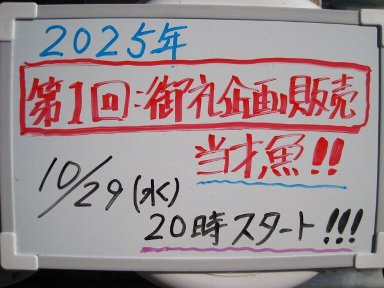 2025年
第1回:御礼企画販売
当才魚!!
10/29(水)
20時スタート!!!